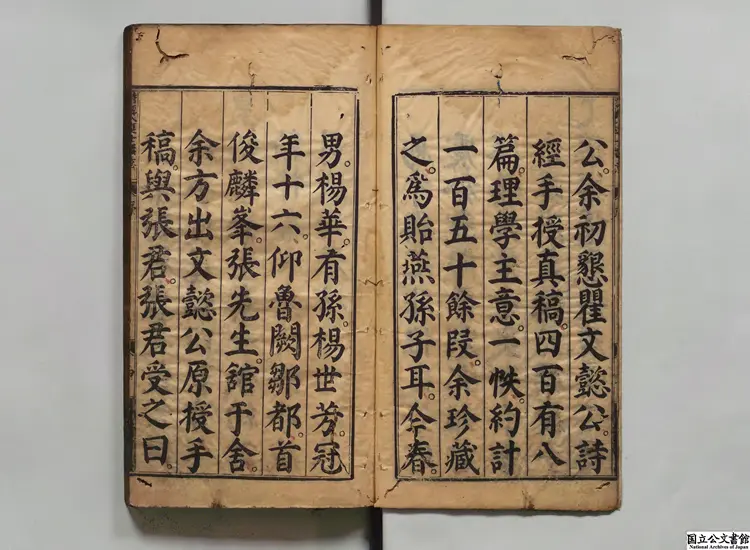 公。余初懇瞿文懿公詩
經手授真稿。四百有八
篇。理學主意。一帙約計
一百五十餘段。余珍藏
之。爲貽燕孫子耳。今春。
男。楊華。有孫。楊世芳。冠
年十六。仰魯闕鄒都。首
俊麟峯。張先生。舘于舍。
余方出文懿公原授手
稿。與張君。張君受之曰。
国立公文書館
National Archives of Japan